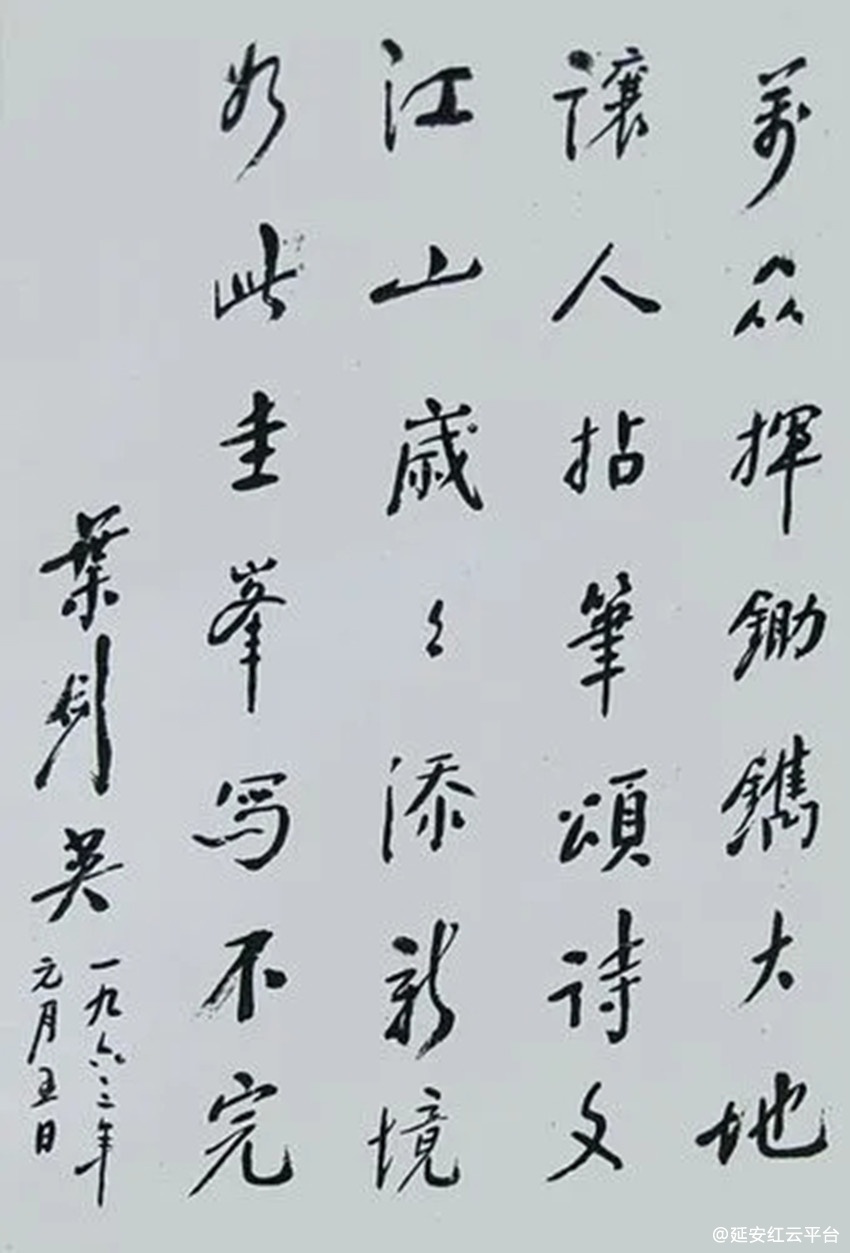 萬众揮鋤鐫大地
讓人拈筆頌詩文
江山歳々添新境
如此圭峯写不完
葉剑英
一九六三年
元月五日
@延安红云平台